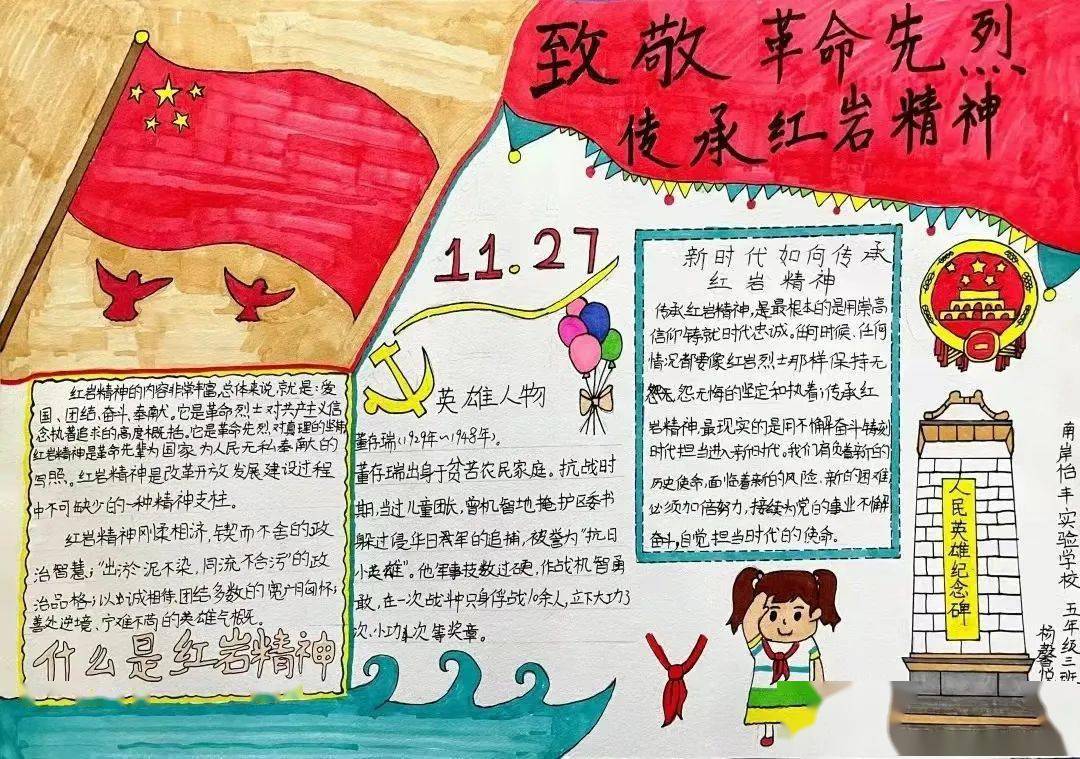 致敬革命先烈
传承红岩精神
11.27
红岩精神的内容非常丰富,总体来说,就是:爱
国、团结、奋斗、奉献。它是革命烈士对共产主义信
念执着追求的高度概括。它是革命先烈,对真理的坚
红岩精神是革命先辈为国家、为人民无私奉献的
写照。红岩精神是改革开放发展建设过程
中不可缺少的一种精神支柱。
红岩精神刚柔相济,锲而不舍的政
治智慧;“出淤泥不染,同流不合污”的政
治品格;以诚相待、团结多数的宽广胸怀;
善处逆境、宁难不苟的英雄气概。
什么是红岩精神
英雄人物
董存瑞(1929年~1948年)。
董存瑞出身于贫苦农民家庭。抗战时
期,当过儿童团长,曾机智地掩护区委书
躲过侵华日军的追捕,被誉为“抗日
小英雄”。他军事技数过硬,作战机智勇
敢,在一次战斗中只身俘战10余人,立下大功3
次、小功4次等奖章。
新时代如何传承
红岩精神
传承红岩精神,是最根本的是用崇高
信仰铸就时代忠诚。任何时候、任何
情况都要像红岩烈士那样保持无
怨无悔的坚定和执着;传承红
岩精神,最现实的是用不懈奋斗铸刻
时代担当进入新时代。我们有负着新的
历史使命,面临着新的风险、新的困难
必须加倍努力,接续为党的事业不懈
奋斗,自觉担当时代的使命。
人民英雄纪念碑
南岸怡丰实验学校 五年级三班
杨馨悦